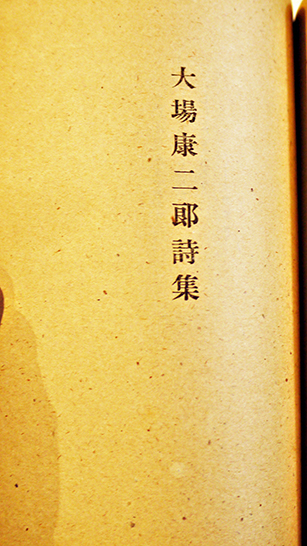 大場康二郎詩集